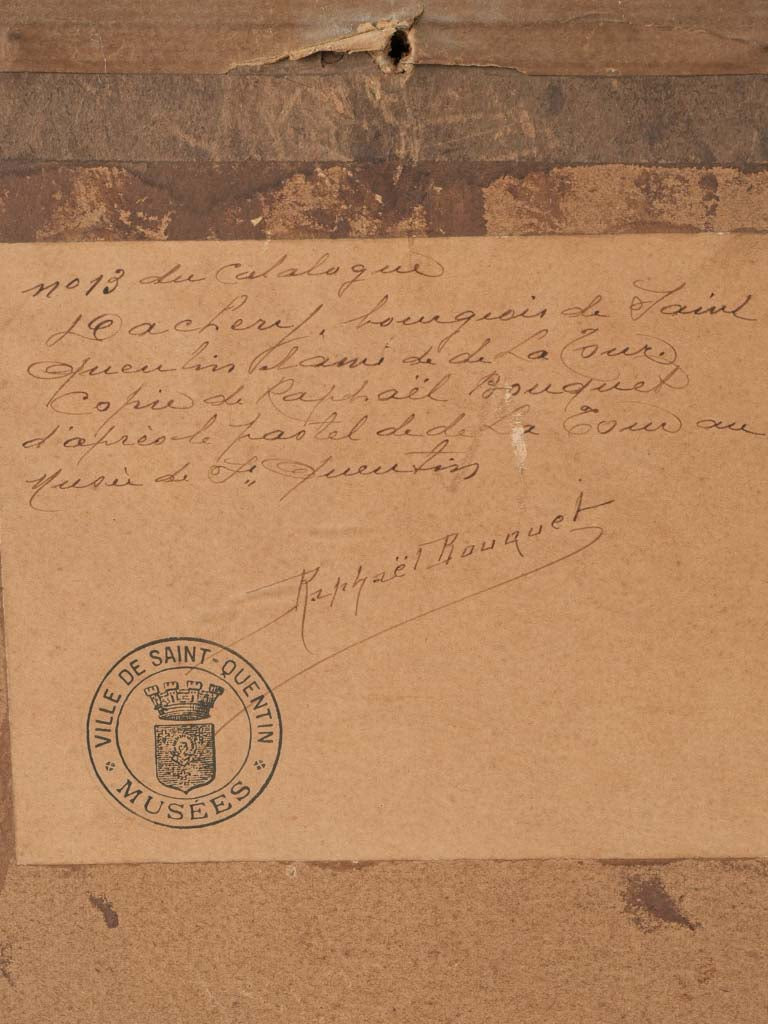 no 13 du Catalogue
Dachery, bourgeois de Saint
Quentin & ami de de La Tour.
Copie de Raphaël Bouquet
d'après le pastel de de La Tour au
Musée de St Quentin
Raphaël Bouquet
VILLE DE SAINT-QUENTIN
MUSÉES